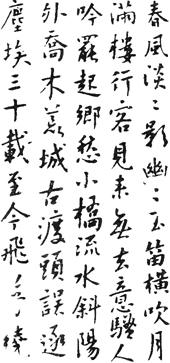 春風淡〻影幽〻玉笛橫吹月
滿樓行客見來無去意騷人
吟罷起鄉愁小橋流水斜陽
外喬木荒城古渡頭誤逐
塵埃三十載至今飛繞